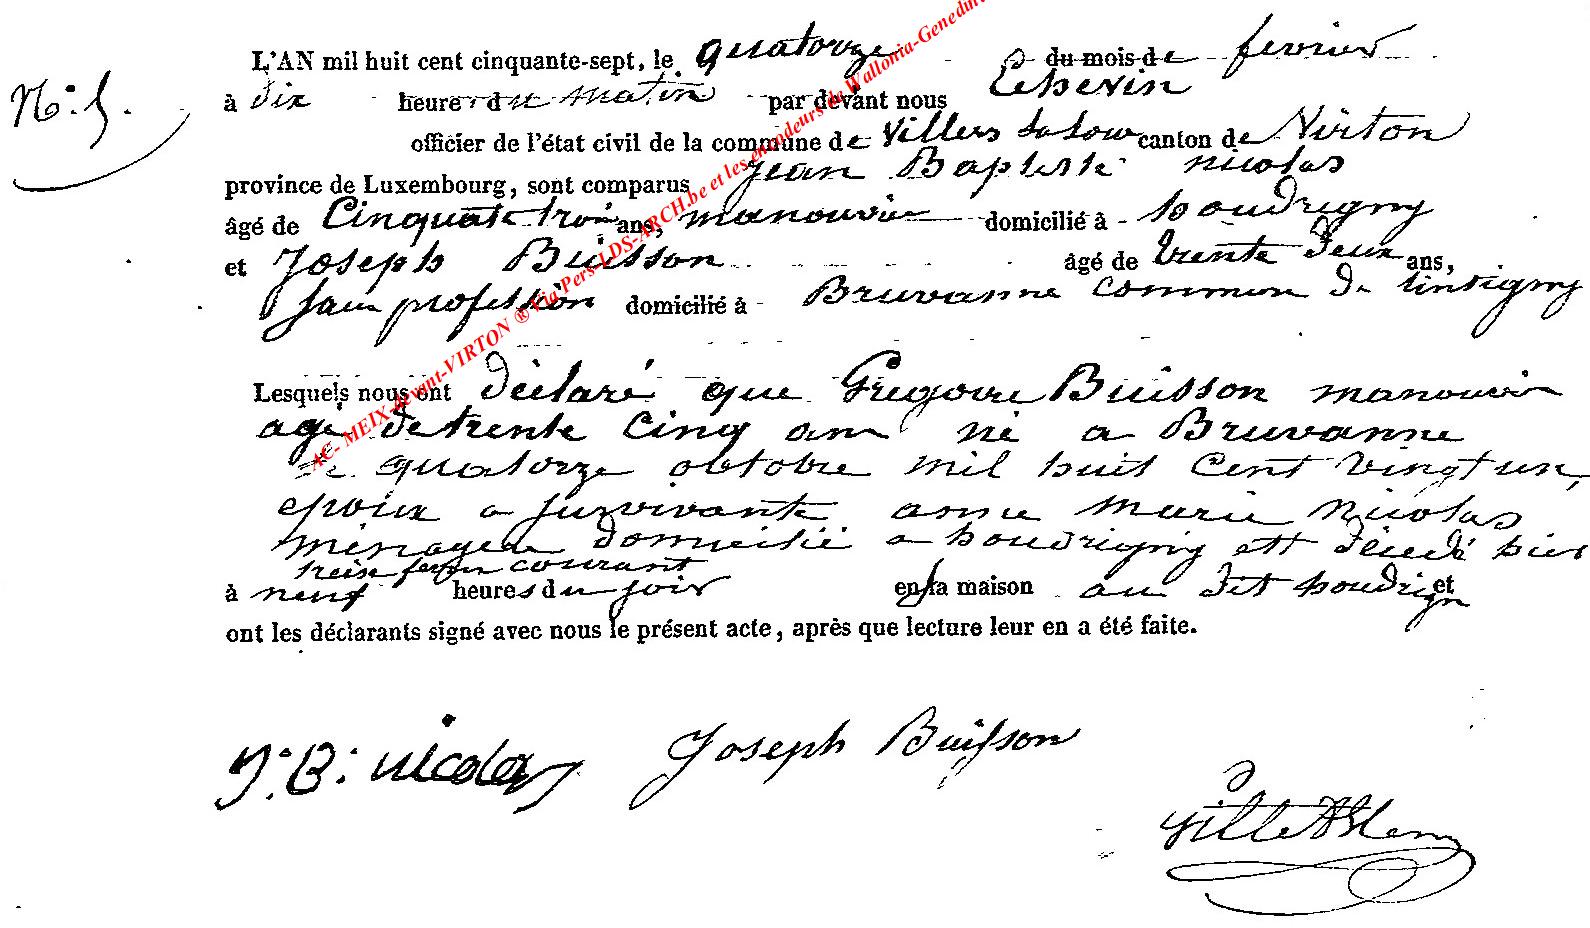 L'AN mil huit cent cinquante-sept, le quatorze du mois de fevrier
N.° 5.
à dix heure du matin par devant nous Echevin
officier de l'état civil de la commune de Villers la loue canton de Virton
province de Luxembourg, sont comparus Jean Baptiste nicolas
âgé de Cinquate trois ans, manouvrier domicilié à houdrigny
et Joseph Buisson âgé de trente deux ans,
sans profession domicilié à Bruvanne commune de tintigny
Lesquels nous ont déclaré que Gregoire Buisson manouvrier
agé de trente cinq ans né a Bruvanne
le quatorze octobre mil huit cent vingt un,
epoux a survivante anne marie Nicolas
ménagere domicilié a houdrigny est décédé hier
treize fevrier courant
à neuf heures du soir en sa maison au dit houdrigny et
ont les déclarants signé avec nous le présent acte, après que lecture leur en a été faite.
J. B. nicolas Joseph Buisson
AC- MEIX-devant-VIRTON ® Via Pers-LDS-ARCH.be et les encodeurs du Wallonia-Genedint